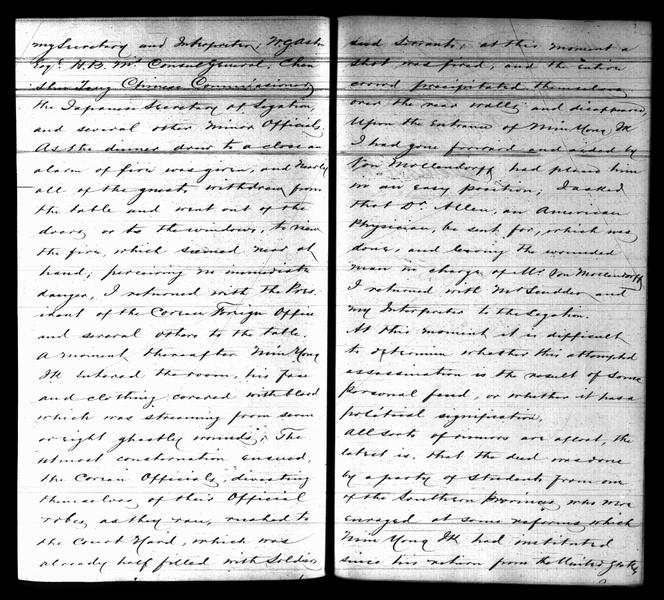 my Secretary and Interpreter, W. G. Aston
Esqr. H. B. Ms Consul General, Chen
Shu Tang Chinese Commissioner,
the Japanese Secretary of Legation,
and several other minor Officials.
As the dinner drew to a close an
alarm of fire was given, and nearly
all of the guests withdrew from
the table and went out of the
doors or to the windows, to view
the fire, which seemed near at
hand; perceiving no immediate
danger, I returned with the Pres-
ident of the Corean Foreign Office
and several others to the table.
A moment thereafter Min Yong
Ik entered the room, his face
and clothing covered with blood
which was streaming from seven
or eight ghastly wounds. The
utmost consternation ensued,
the Corean Officials, divesting
themselves of their Official
robes as they ran, rushed to
the Court Yard, which was
already half filled with Soldiers
and Servants; at this moment a
shot was fired, and the entire
crowd precipitated themselves
over the rear walls and disappeared.
Upon the entrance of Min Yong Ik
I had gone forward and aided by
Von Mollendorff had placed him
in an easy position; I asked
that Dr. Allen, an American
Physician, be sent for, which was
done, and leaving the wounded
man in charge of Mr. Von Mollendorff
I returned with Mr Scudder and
my Interpreter to the Legation.
At this moment it is difficult
to determine whether this attempted
assassination is the result of some
personal feud, or whether it has a
political signification.
All sorts of rumors are afloat, the
latest is, that the deed was done
by a party of Students from one
of the Southern Provinces who were
enraged at some reforms which
Min Yong Ik had instituted
since his return from the United States,